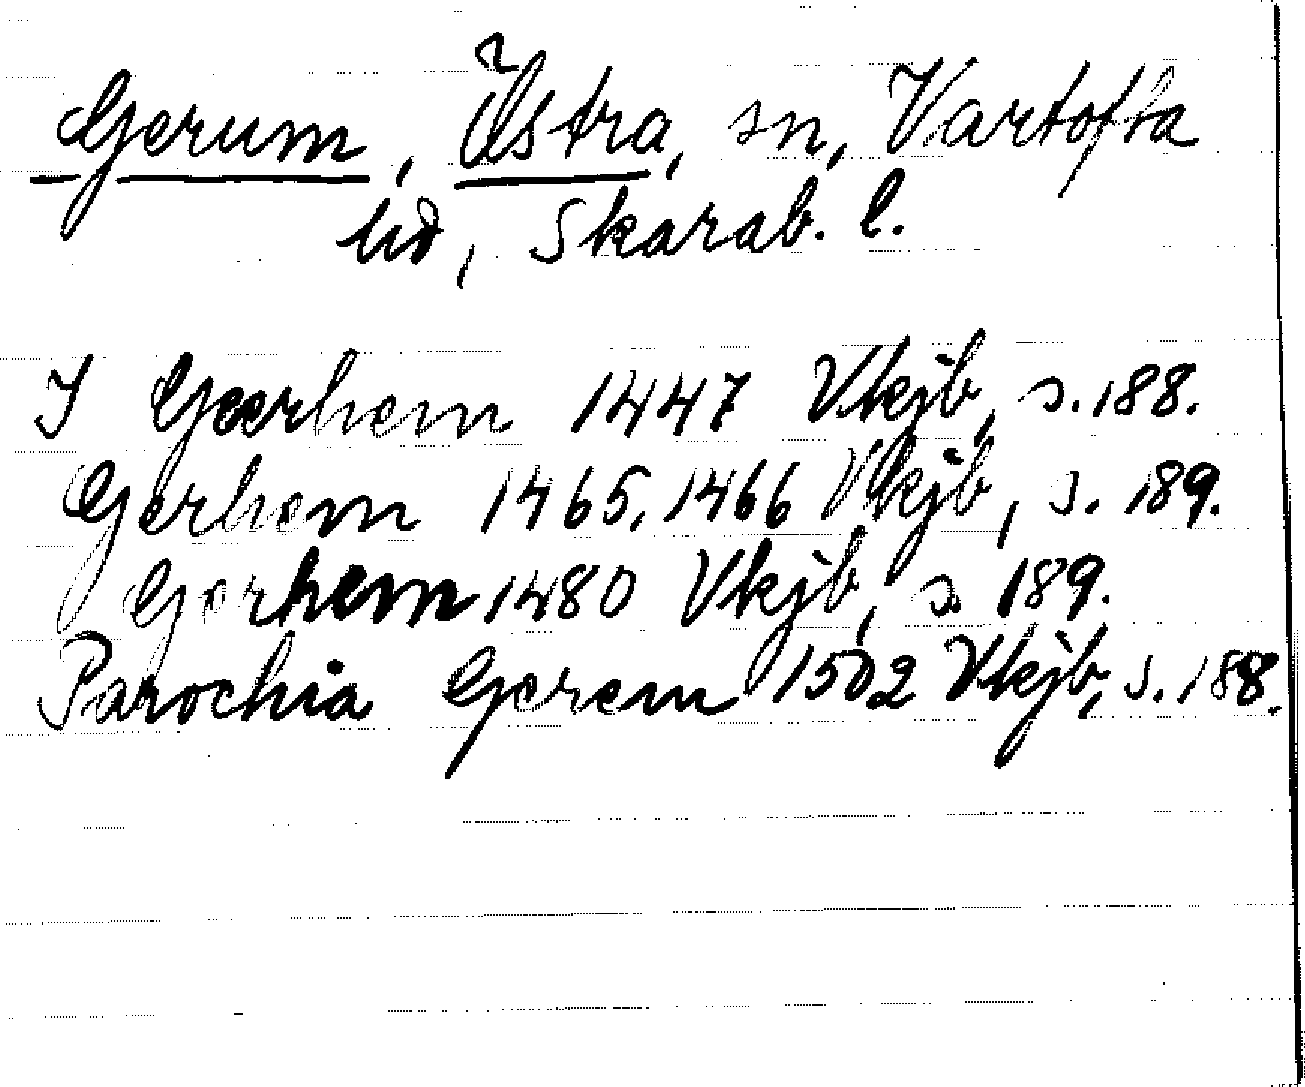 Gerum, Östra, sn, Vartofta
hd, Skarab. l.
I Gerhem 1447 Vkjb, s. 188.
Gerhem 1465, 1466 Vkjb, s. 189.
Gerhem 1480 Vkjb, s 189.
Parochia Gerem 1502 Vkjb, s. 188.